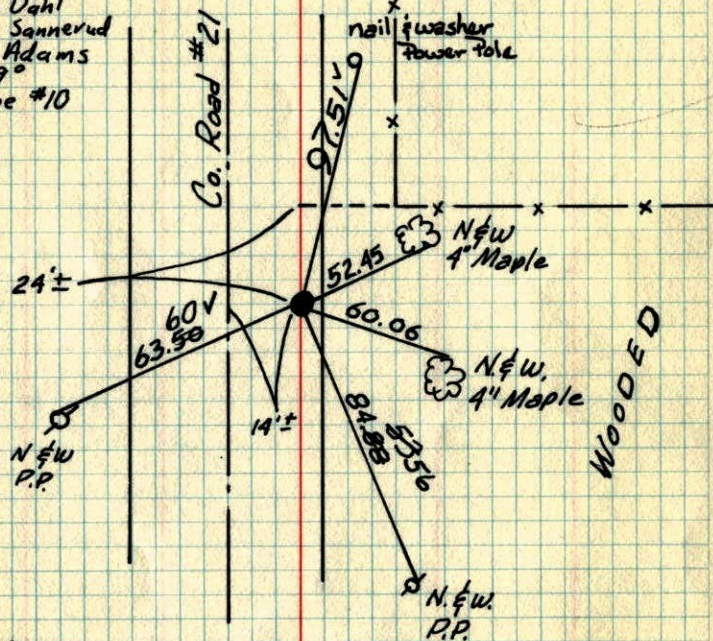 Dahl
Sannerud
Adams
9°
#10
Co. Road #21
nail & washer
Power Pole
97.51 ✓
N & W
4" Maple
52.45
24'±
60 ✓
63.50
60.06
N. & W.
4" Maple
14'±
84.88
83.56
WOODED
N & W
P.P.
N. & W.
P.P.